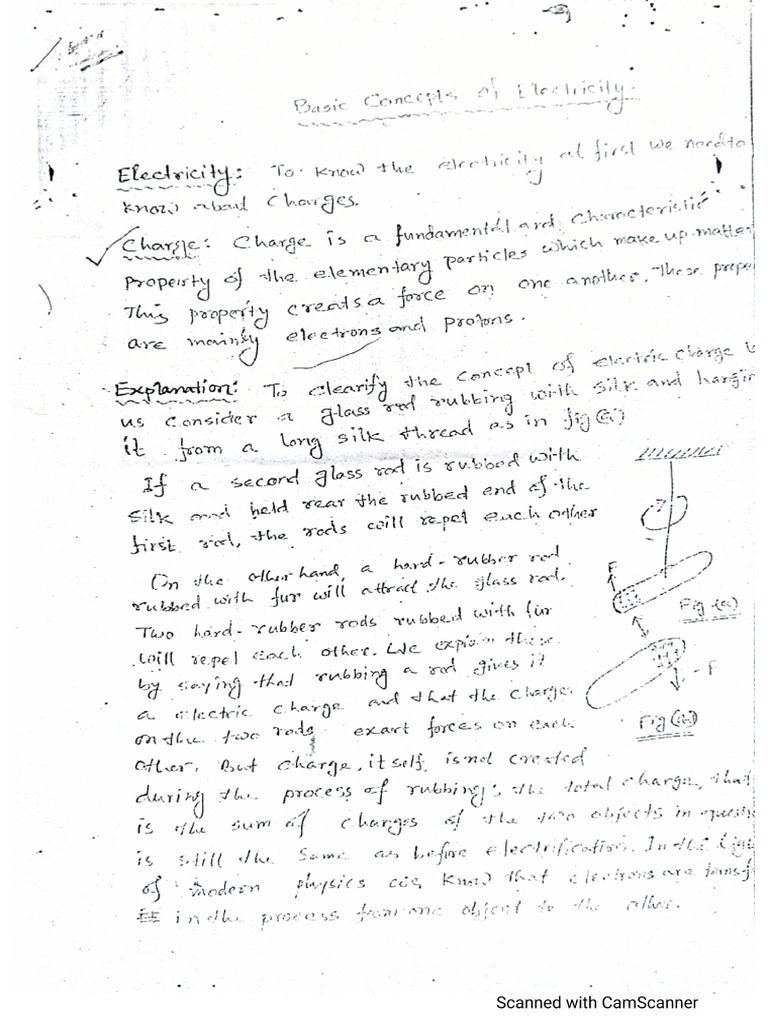 Basic Concepts of Electricity.
Electricity: To know the electricity at first we need to
know about Charges.
Charge: Charge is a fundamental and characteristic
property of the elementary particles which make up matter
This property creats a force on one another. These
are mainly electrons and protons.
Explanation: To clearify the concept of electric charge
us consider a glass rod rubbing with silk and
it from a long silk thread as in fig(a)
If a second glass rod is rubbed with
silk and held near the rubbed end of the
first rod, the rods will repel each other
On the other hand, a hard-rubber rod
rubbed with fur will attract the glass rod.
Two hard-rubber rods rubbed with fur
will repel each other. We explain these
by saying that rubbing a rod gives it
a electric charge and that the charge
on the two rods exart forces on each
other. But charge, itself, is not created
during the process of rubbing; the total charge, that
is the sum of charges of the two objects in
is still the same as before electrification. In the
of modern physics we know that electrons are
in the process from one object to the other.
F
Fig (a)
- F
Fig (b)
Scanned with CamScanner